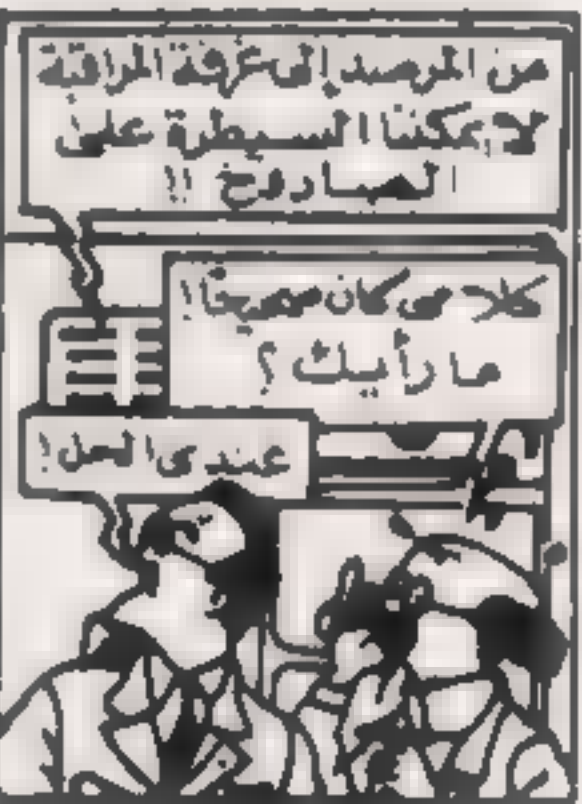 من المرصد إلى غرفة المراقبة
لا يمكننا السيطرة على
الصاروخ !!
كلامى كان صحيحا!
ما رأيك ؟
عندى الحل!